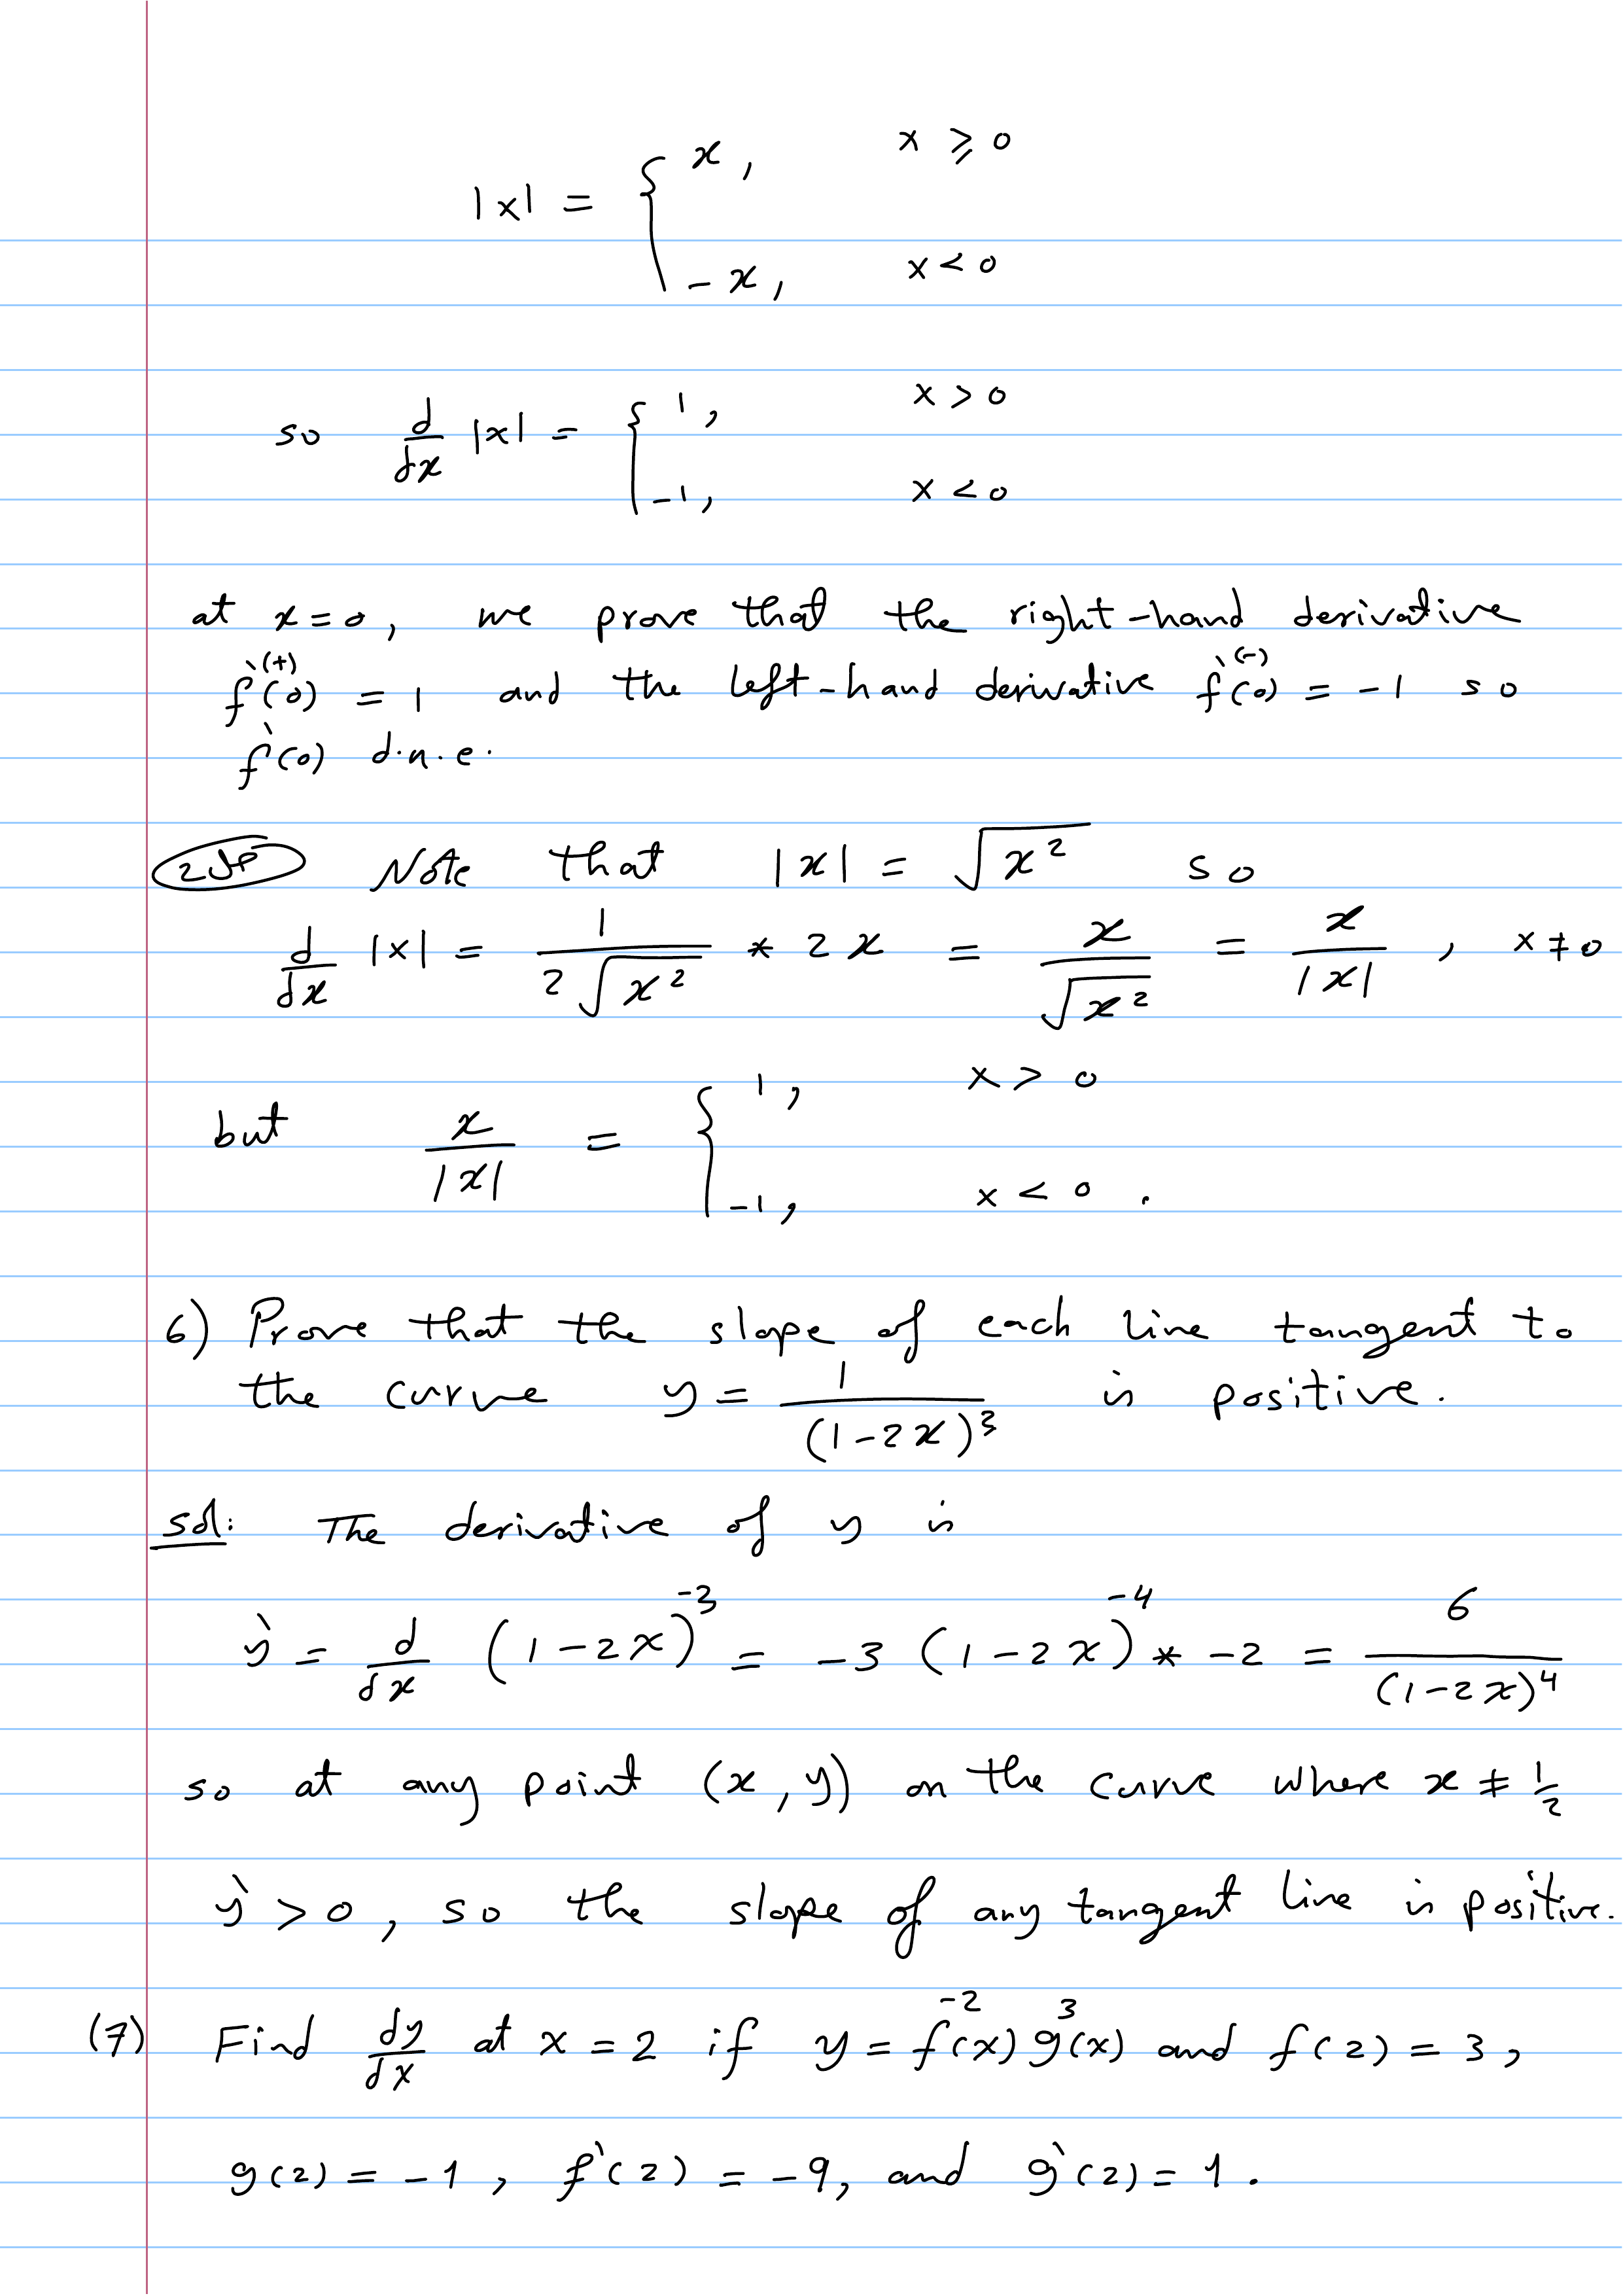 |x| = { x, x ⩾ 0
-x, x < 0
so d/dx |x| = { 1, x > 0
-1, x < 0
at x = 0, we prove that the right-hand derivative
f`(+)(0) = 1 and the left-hand derivative f`(-)(0) = -1 so
f`(0) d.n.e.
Note that |x| = √x² so
d/dx |x| = 1/(2√x²) * 2x = x/√x² = x/|x| , x ≠ 0
but x/|x| = { 1, x > 0
-1, x < 0 .
6) Prove that the slope of each line tangent to
the curve y = 1/(1-2x)³ is positive.
sol: The derivative of y is
y` = d/dx (1-2x)⁻³ = -3 (1-2x)⁻⁴ * -2 = 6/(1-2x)⁴
so at any point (x, y) on the curve where x ≠ 1/2
y` > 0, so the slope of any tangent line is positive.
(7) Find dy/dx at x = 2 if y = f⁻²(x) g³(x) and f(2) = 3,
g(2) = -1, f`(2) = -9, and g`(2) = 1.